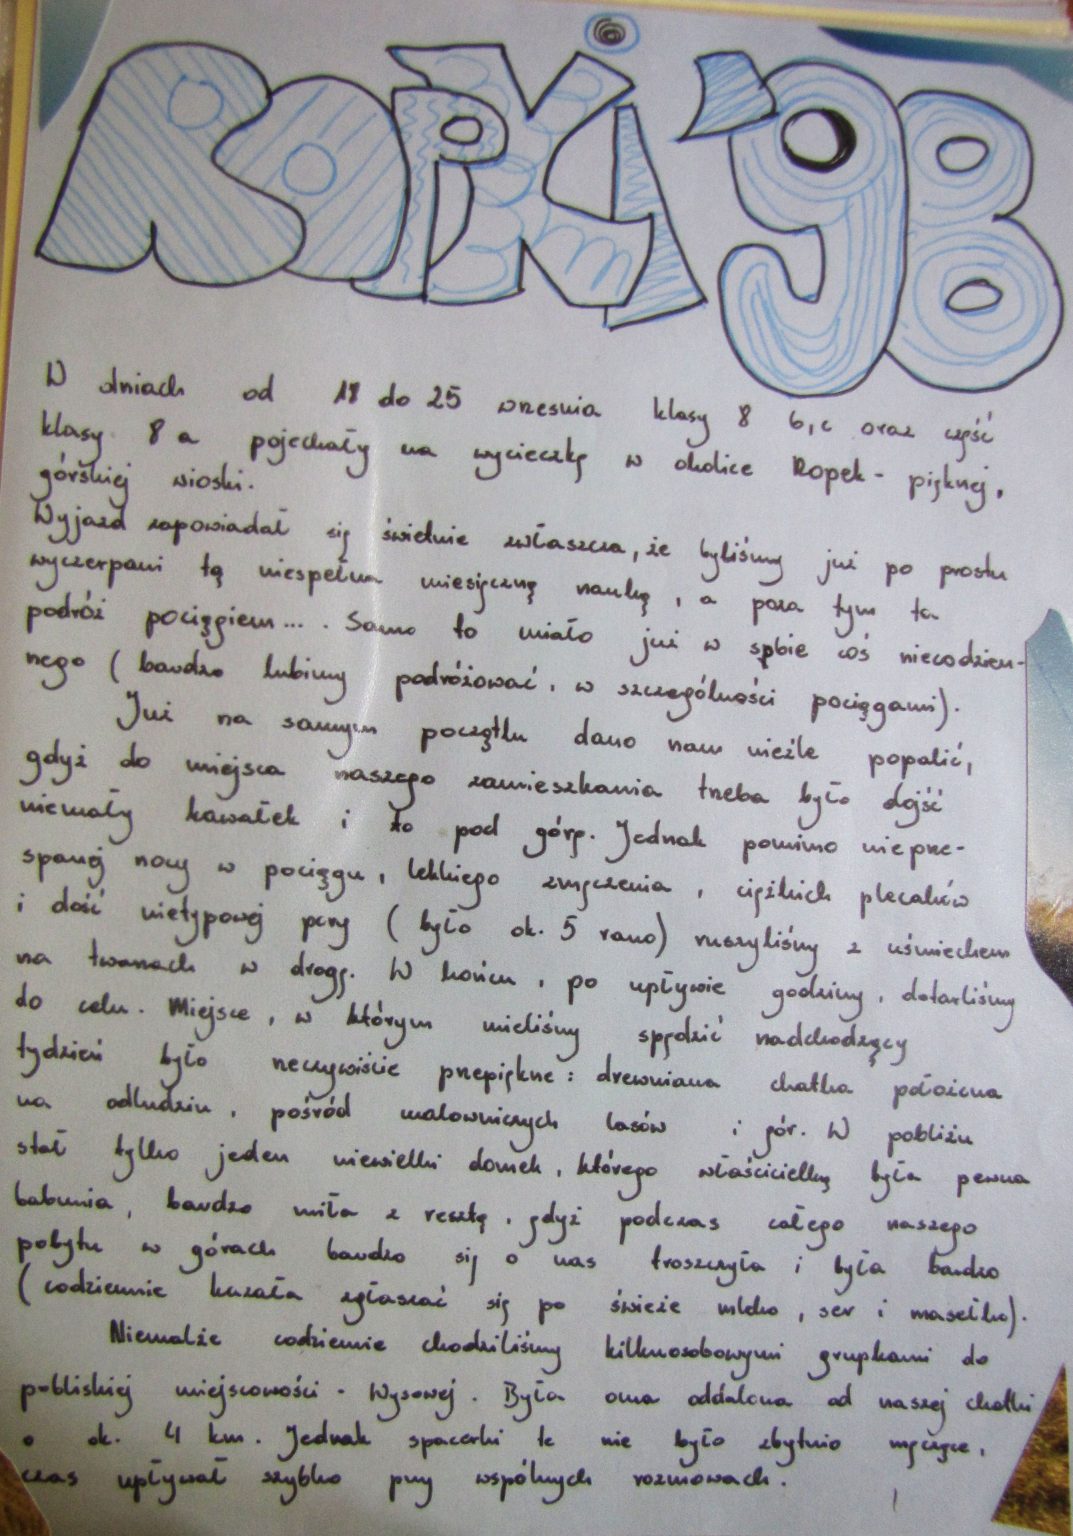 ROPKi '98
W dniach od 18 do 25 wresnia klasy 8 b, c oraz część
klasy 8 a pojechały na wycieczkę w okolice Ropek - pięknej,
górskiej wioski.
Wyjazd zapowiadał się świetnie zwłaszcza, że byliśmy już po prostu
wyczerpani tą niespełna miesięczną nauką, a poza tym ta
podróż pociągiem... . Samo to miało już w sobie coś niecodzien-
nego (bardzo lubimy podróżować, w szczególności pociągami).
Już na samym początku dano nam nieźle popalić,
gdyż do miejsca naszego zamieszkania trzeba było dojść
niemały kawałek i to pod górę. Jednak pomimo nieprze-
spanej nocy w pociągu, lekkiego zmęczenia, ciężkich plecaków
i dość nietypowej pory (było ok. 5 rano) ruszyliśmy z uśmiechem
na twarzach w drogę. W końcu, po upływie godziny, dotarliśmy
do celu. Miejsce, w którym mieliśmy spędzić nadchodzący
tydzień było rzeczywiście przepiękne: drewniana chatka położona
na odludziu, pośród malowniczych lasów i gór. W pobliżu
stał tylko jeden niewielki domek, którego właścicielką była pewna
babunia, bardzo miła z resztą, gdyż podczas całego naszego
pobytu w górach bardzo się o nas troszczyła i była bardzo
(codziennie kazała zgłaszać się po świeże mleko, ser i masełko).
Niemalże codziennie chodziliśmy kilkuosobowymi grupkami do
pobliskiej miejscowości - Wysowej. Była ona oddalona od naszej chatki
o ok. 4 km. Jednak spacerki te nie było zbytnio męczące,
czas upływał szybko przy wspólnych rozmowach.